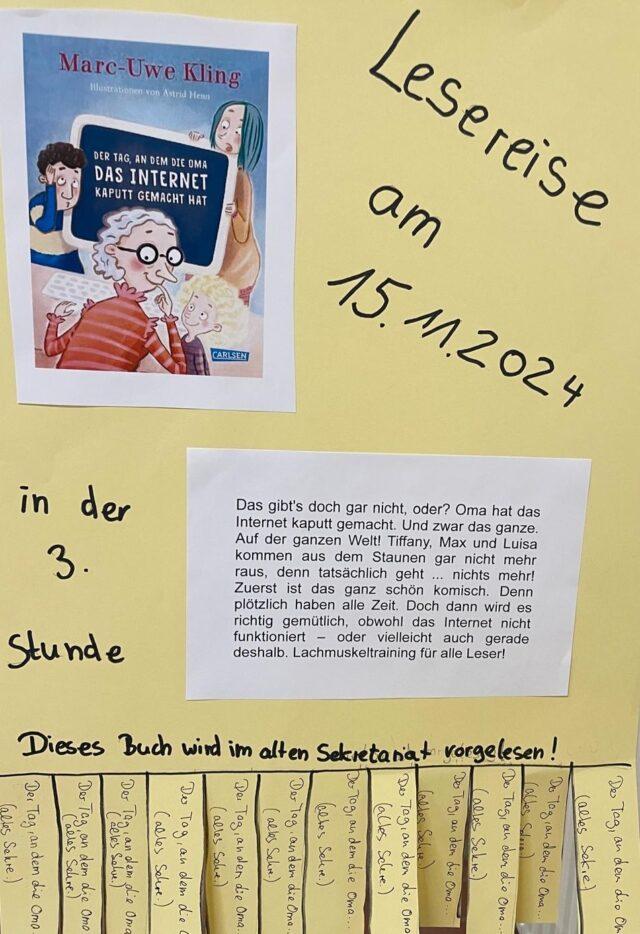 Marc-Uwe Kling
Illustrationen von Astrid Henn
DER TAG, AN DEM DIE OMA
DAS INTERNET
KAPUTT GEMACHT HAT
CARLSEN
Lesereise
am
15.11.2024
in der
3.
Stunde
Das gibt's doch gar nicht, oder? Oma hat das
Internet kaputt gemacht. Und zwar das ganze.
Auf der ganzen Welt! Tiffany, Max und Luisa
kommen aus dem Staunen gar nicht mehr
raus, denn tatsächlich geht ... nichts mehr!
Zuerst ist das ganz schön komisch. Denn
plötzlich haben alle Zeit. Doch dann wird es
richtig gemütlich, obwohl das Internet nicht
funktioniert – oder vielleicht auch gerade
deshalb. Lachmuskeltraining für alle Leser!
Dieses Buch wird im alten Sekretariat vorgelesen!
Der Tag, an dem die Oma
(altes Sekre.)
Der Tag, an dem die Oma
(altes Sekre.)
Der Tag, an dem die Oma
(altes Sekre.)
Der Tag, an dem die
(altes Sekre.)
Der Tag, an dem die Oma...
(altes Sekre.)
Der Tag, an dem die Oma...
(altes Sekre.)
Der Tag, an dem die Oma...
(altes Sekre.)
Der Tag, an dem die Oma
(altes Sekre.)
Der Tag, an dem die Oma...
(altes Sekre.)
Der Tag, an dem die Oma...
(altes Sekre.)
Der Tag, an dem die Oma...
(altes Sekre.)
Der Tag, an dem die
(altes Sekre.)